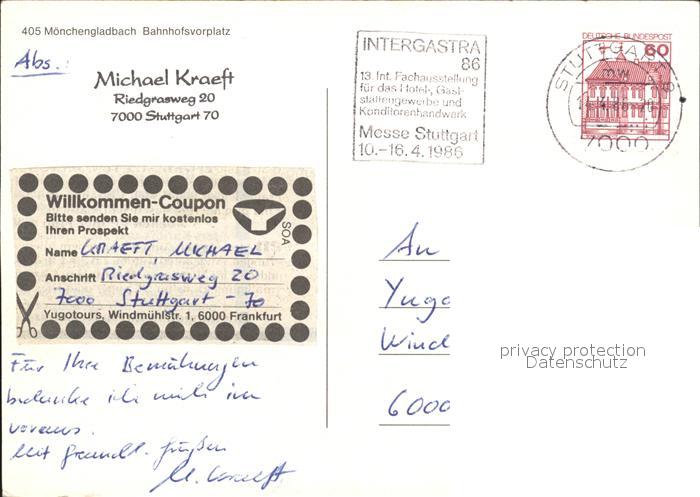 405 Mönchengladbach Bahnhofsvorplatz
Abs.:
Michael Kraeft
Riedgrasweg 20
7000 Stuttgart 70
INTERGASTRA
86
13. Int. Fachausstellung
für das Hotel-, Gast-
stättengewerbe und
Konditorenhandwerk
Messe Stuttgart
10.-16.4.1986
DEUTSCHE BUNDESPOST
60
STUTTGART
mw
7000
Willkommen-Coupon
Bitte senden Sie mir kostenlos
Ihren Prospekt
SOA
Name KRAEFT, MICHAEL
Anschrift Riedgrasweg 20
7000 Stuttgart - 70
Yugotours, Windmühlstr. 1, 6000 Frankfurt
An
Yugo
Wind
6000
privacy protection
Datenschutz
Für Ihre Bemühungen
bedanke ich mich im
voraus.
Mit freundl. Grüßen
M. Kraeft